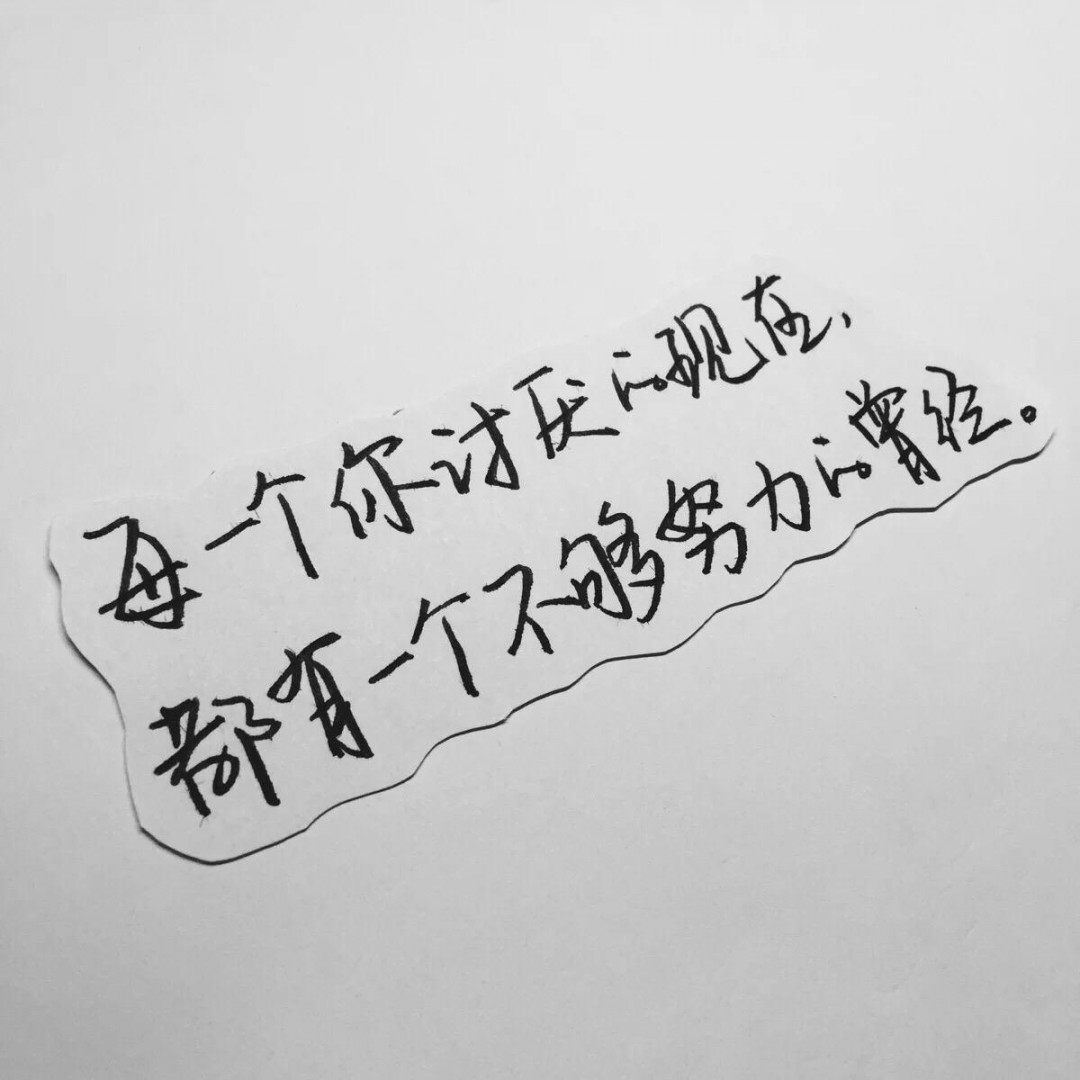 每一个你讨厌的现在,
都有一个不够努力的曾经。